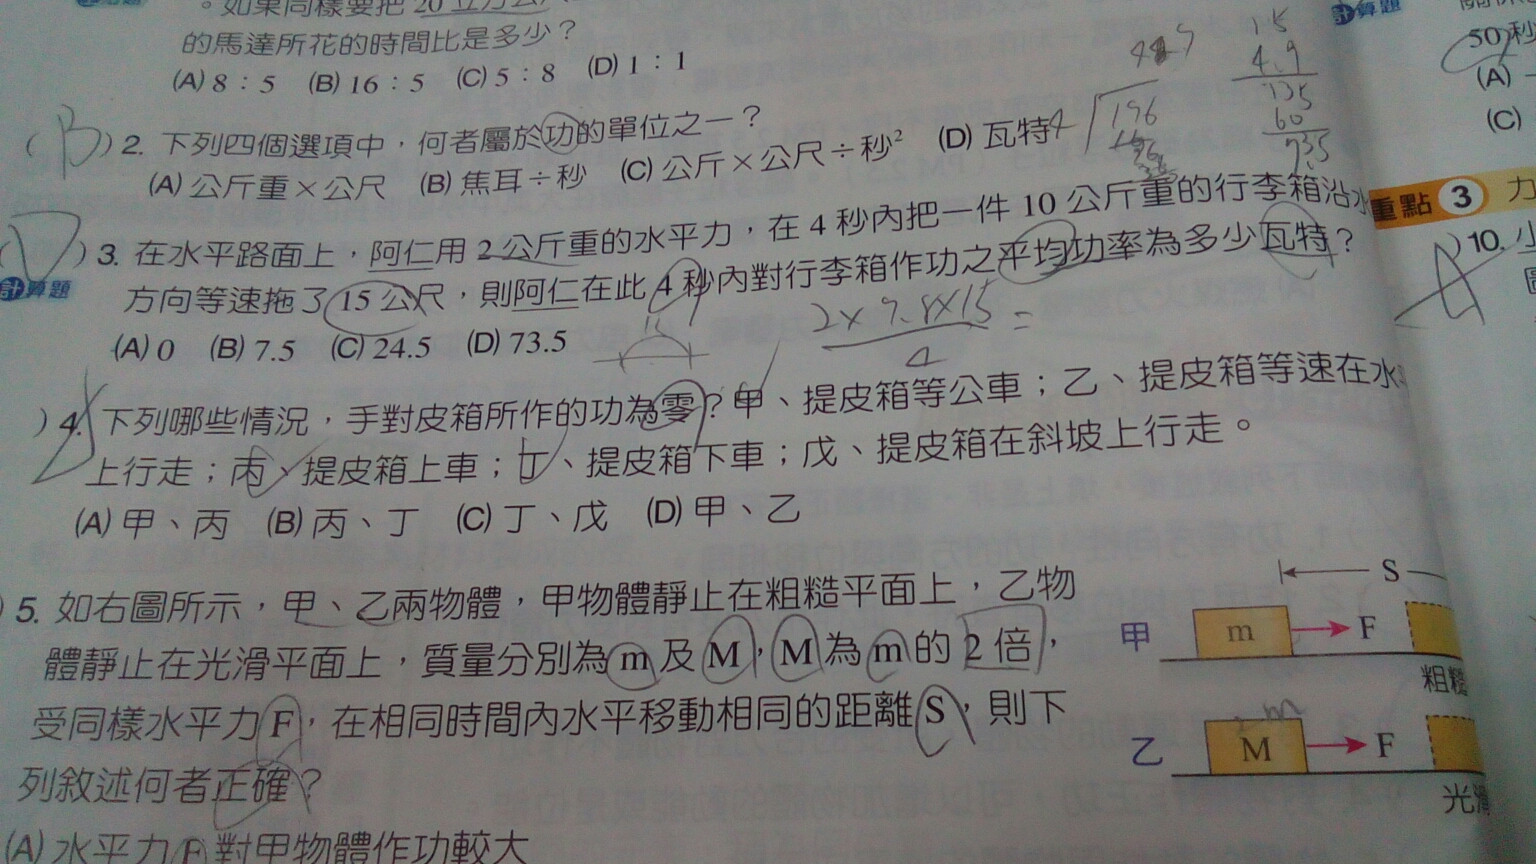 。如果同樣要把20立方公
的馬達所花的時間比是多少？
(A) 8：5 (B) 16：5 (C) 5：8 (D) 1：1
(B) 2. 下列四個選項中，何者屬於功的單位之一？
(A) 公斤重×公尺 (B) 焦耳÷秒 (C) 公斤×公尺÷秒² (D) 瓦特
4 196
1.5
4.9
135
60
735
(D) 3. 在水平路面上，阿仁用 2 公斤重的水平力，在 4 秒內把一件 10 公斤重的行李箱沿水
計算題 方向等速拖了 15 公尺，則阿仁在此 4 秒內對行李箱作功之平均功率為多少瓦特？
(A) 0 (B) 7.5 (C) 24.5 (D) 73.5
2×9.8×15
4
=
) 4. 下列哪些情況，手對皮箱所作的功為零？甲、提皮箱等公車；乙、提皮箱等速在水
上行走；丙、提皮箱上車；丁、提皮箱下車；戊、提皮箱在斜坡上行走。
(A) 甲、丙 (B) 丙、丁 (C) 丁、戊 (D) 甲、乙
) 5. 如右圖所示，甲、乙兩物體，甲物體靜止在粗糙平面上，乙物
體靜止在光滑平面上，質量分別為 m 及 M，M 為 m 的 2 倍，
受同樣水平力 F，在相同時間內水平移動相同的距離 S，則下
列敘述何者正確？
(A) 水平力 F 對甲物體作功較大
S
甲 m F
粗糙
2m
乙 M F
光滑
計算題
50 秒
(A)
(C)
重點 3 力
) 10. 小
圖